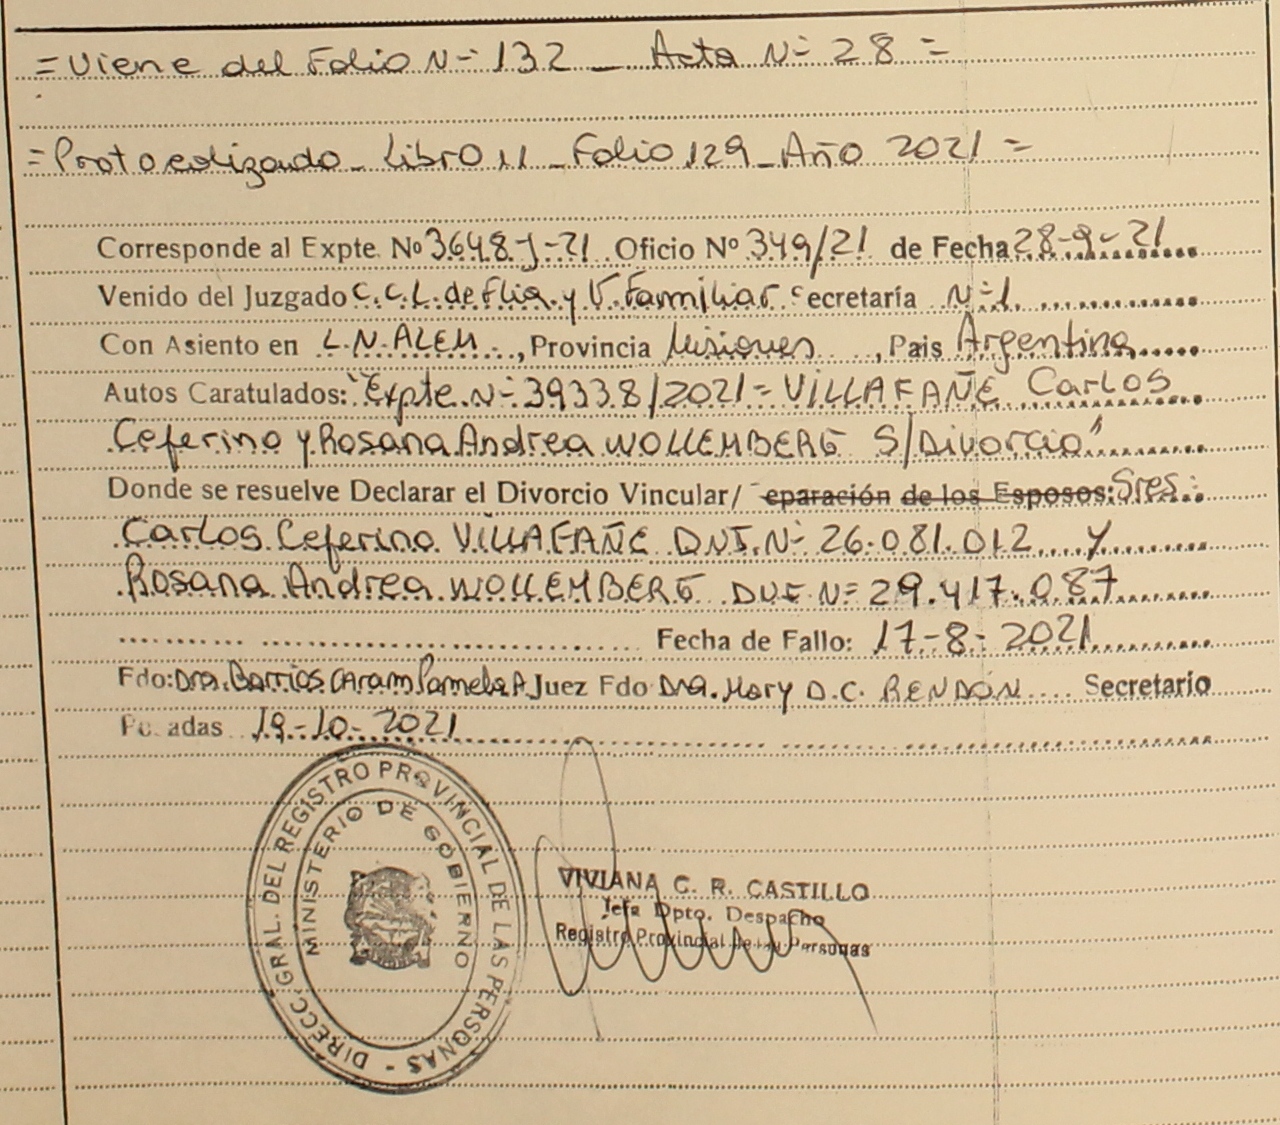 =Viene del Folio N= 132 _ Acta N= 28 =
=Protocolizado_ Libro 11 _ Folio 129_ Año 2021 =
Corresponde al Expte. Nº 3648-J-21 Oficio Nº 349/21 de Fecha 28-9-21
Venido del Juzgado C.C.L. de Flia. y V. Familiar Secretaría N=1
Con Asiento en L.N.ALEM, Provincia Misiones, Pais Argentina
Autos Caratulados: "Expte. N=39338/2021= VILLAFAÑE Carlos
Ceferino y Rosana Andrea WOLLEMBERG S/Divorcio"
Donde se resuelve Declarar el Divorcio Vincular/ eparación de los Esposos: Sres.
Carlos Ceferino VILLAFAÑE DNI. N= 26.081.012 y
Rosana Andrea WOLLEMBERG DNI N= 29.417.087
Fecha de Fallo: 17-8-2021
Fdo: Dra. Barrios Caram Pamela A Juez Fdo Dra. Mary D.C. RENDÓN Secretario
Posadas 19-10-2021
DIRECC. GRAL. DEL REGISTRO PROVINCIAL DE LAS PERSONAS -
MINISTERIO DE GOBIERNO
VIVIANA C. R. CASTILLO
Jefa Dpto. Despacho
Registro Provincial de las Personas